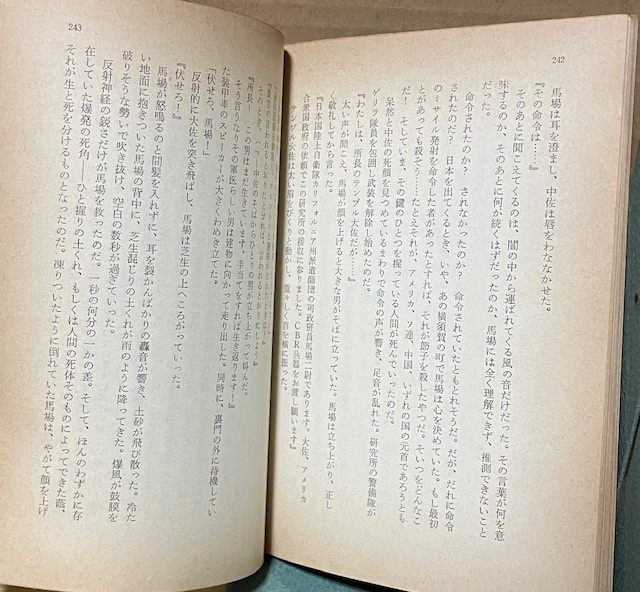 242
馬場は耳を澄まし、中佐は唇をわななかせた。
『その命令は……』
そのあとに聞こえてくるのは、闇の中から運ばれてくる風の音だけだった。その言葉が何を意
味するのか、そのあとに何が続くはずだったのか、馬場には全く理解できず、推測できないこと
だった。
命令されたのだ? されなかったのか? 命令されていたともとれそうだ。だが、だれに命令
されたのだ? 日本を出てくるとき、いや、あの横須賀の町で馬場は心を決めていた。もし最初
のミサイル発射を命令した者があったとすれば、それが節子を殺したやつだ。そいつをどんなこ
とがあっても殺そう……たとえそれが、アメリカ、ソ連、中国、いずれの国の元首であろうとも
だ! そしていま、その鍵のひとつを握っている人間が死んでいったのだ。
呆然と中佐の死顔を見つめているまわりで命令の声が響き、足音が乱れた。研究所の警備隊が
ゲリラ隊員を包囲し武装を解除し始めたのだ。
『わたしは、所長のテンプル大佐だが……』
太い声が聞こえ、馬場が顔を上げると大きな男がそばに立っていた。馬場は立ち上がり、正し
く敬礼してから言った。
『日本国陸上自衛隊カリフォルニア州派遣師団の司政班員馬場一尉であります。大佐、アメリカ
合衆国政府の依頼でこの研究所の接収に参りました。CBR兵器をお渡し願います』
テンプル大佐は太い眉をぴくりと動かし、重々しく首を横に振った。
243
そのとき、ハワード中佐のそばからひとりの男が立ち上がって叫んだ。
『所長! この男はまだ生きています。手当てをすれば生き返ります!』
そう言うなりその軍医らしい男は建物に向かって走り出した。同時に、裏門の外に待機してい
た装甲車のスピーカーが大きくわめき立てた。
「伏せろ、馬場!」
反射的に大佐を突き飛ばし、馬場は芝生の上へころがっていった。
『伏せろ!』
馬場が怒鳴るのと間髪を入れずに、耳を裂かんばかりの轟音が響き、土砂が飛び散った。冷た
い地面に抱きついた馬場の背中に、芝生混じりの土くれが雨のように降ってきた。爆風が鼓膜を
破りそうな勢いで吹き抜け、空白の数秒が過ぎていった。
反射神経の鋭さだけが馬場を救ったのだ。一秒の何分の一かの差。そして、ほんのわずかに存
在していた爆発の死角――ひと握りの土くれ、もしくは人間の死体そのものによってできた蔭、
それが生と死を分けるものとなったのだ。凍りついたように倒れていた馬場は、やがて顔を上げ